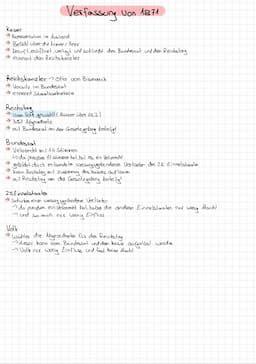 Verfassung von 1871
Kaiser
→ Repräsentation im Ausland
→ Befehl über die kaiserl. Heer
→ beruft, eröffnet, vertagt und schließt den Bundesrat und den Reichstag
→ ernennt den Reichskanzler
Reichskanzler → Otto von Bismarck
→ Vorsitz im Bundesrat
→ ernennt Staatssekretäre
Reichstag
→ vom Volk gewählt (Männer über 25 J.)
→ 382 Abgeordnete
→ mit Bundesrat an der Gesetzgebung beteiligt
Bundesrat
→ Vetorecht mit 14 Stimmen
→ da preußen 17 Stimmen hat, hat es ein Vetorecht
→ gebildet durch mitwirkende weisungsgebundene Vertreter der 25 Einzelstaaten
→ kann Reichstag mit Zustimmung des Kaisers auflösen
→ mit Reichstag an der Gesetzgebung beteiligt
25 Einzelstaaten
→ schicken einen weisungsgebundenen Vertreter
→ da preußen ein Vetorecht hat, haben die anderen Einzelstaaten nur wenig Macht
→ und so auch nur wenig Einfluss
Volk
→ wählte die Abgeordneten für den Reichstag
→ dieser kann vom Bundesrat und dem Kaiser aufgelöst werden
→ Volk nur wenig Einfluss und fast keine Macht